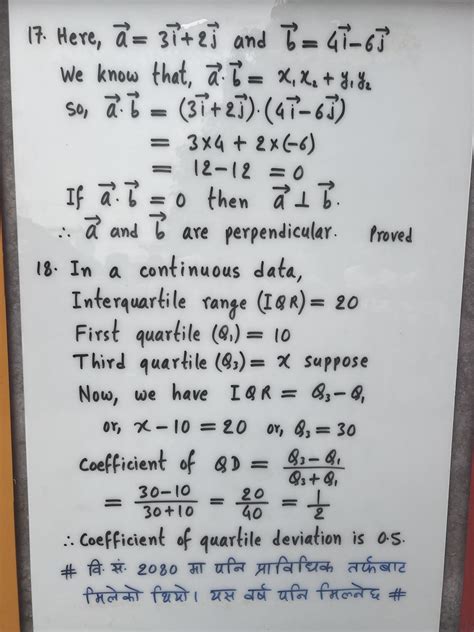 17. Here, a⃗ = 3i⃗ + 2j⃗ and b⃗ = 4i⃗ - 6j⃗
We know that, a⃗.b⃗ = x₁x₂ + y₁y₂
so, a⃗.b⃗ = (3i⃗ + 2j⃗).(4i⃗ - 6j⃗)
= 3×4 + 2×(-6)
= 12 - 12 = 0
If a⃗.b⃗ = 0 then a⃗ ⊥ b⃗.
∴ a⃗ and b⃗ are perpendicular. Proved
18. In a continuous data,
Interquartile range (IQR) = 20
First quartile (Q₁) = 10
Third quartile (Q₃) = x suppose
Now, we have IQR = Q₃ - Q₁
or, x - 10 = 20 or, Q₃ = 30
Coefficient of QD = (Q₃ - Q₁)/(Q₃ + Q₁)
= (30 - 10)/(30 + 10) = 20/40 = 1/2
∴ Coefficient of quartile deviation is 0.5.
# वि.सं. 2080 मा पनि प्राविधिक तर्फबाट
मिलेको थियो। यस वर्ष पनि मिल्नेछ #